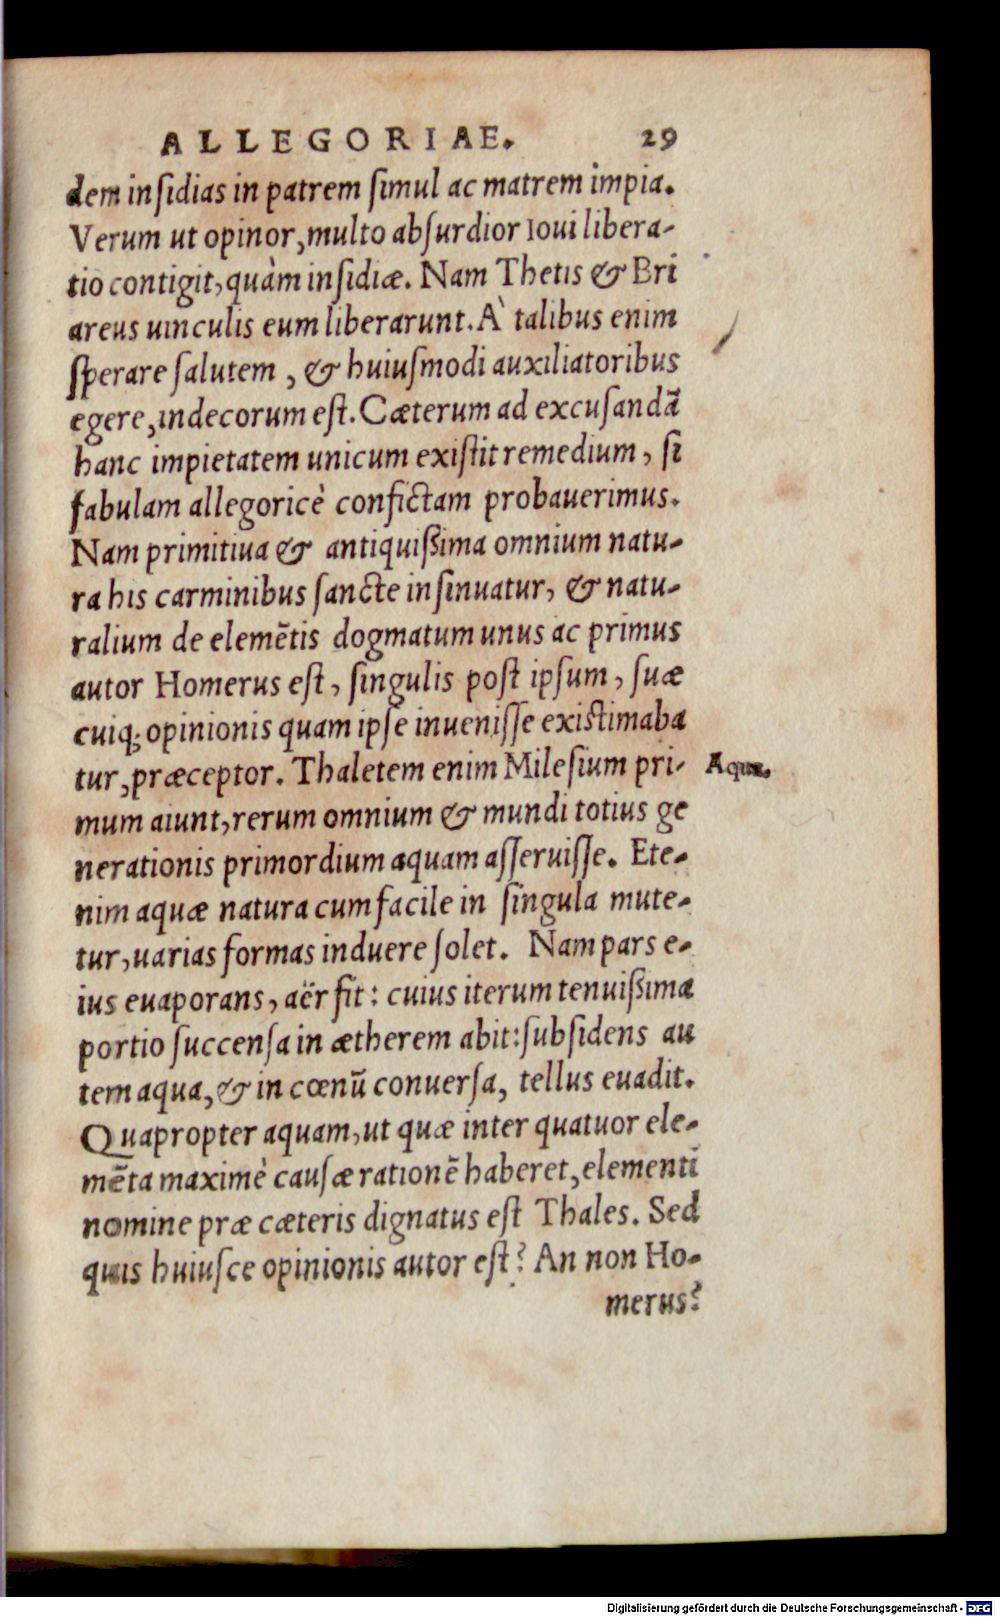 ALLEGORIAE. 29
dem inſidias in patrem ſimul ac matrem impia.
Verum ut opinor, multo abſurdior Ioui libera-
tio contigit, quàm inſidiæ. Nam Thetis & Bri
areus uinculis eum liberarunt. À talibus enim
ſperare ſalutem, & huiuſmodi auxiliatoribus
egere, indecorum eſt. Cæterum ad excuſandã
hanc impietatem unicum exiſtit remedium, ſi
fabulam allegoricè confictam probauerimus.
Nam primitiua & antiquißima omnium natu-
ra his carminibus ſancte inſinuatur, & natu-
ralium de elemẽtis dogmatum unus ac primus
autor Homerus eſt, ſingulis poſt ipſum, ſuæ
cuiq; opinionis quam ipſe inueniſſe exiſtimaba
tur, præceptor. Thaletem enim Mileſium pri-
Aqua.
mum aiunt, rerum omnium & mundi totius ge
nerationis primordium aquam aſſeruiſſe. Ete-
nim aquæ natura cum facile in ſingula mute-
tur, uarias formas induere ſolet. Nam pars e-
ius euaporans, aër fit: cuius iterum tenuißima
portio ſuccenſa in ætherem abit: ſubſidens au
tem aqua, & in cœnũ conuerſa, tellus euadit.
Quapropter aquam, ut quæ inter quatuor ele-
mẽta maximè cauſæ rationẽ haberet, elementi
nomine præ cæteris dignatus eſt Thales. Sed
quis huiuſce opinionis autor eſt? An non Ho-
merus?
Digitalisierung gefördert durch die Deutsche Forschungsgemeinschaft - DFG